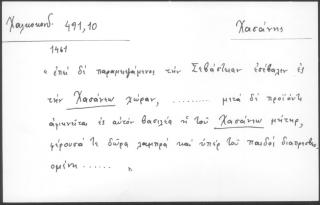 Χαλκοκονδ. 491,10 Χασάνης
1461
"ἐπεὶ δὲ παραμειψάμενος τὴν Σεβάστειαν ἐσέβαλεν ἐς
τὴν Χασάνεω χώραν, ......... μετὰ δὲ προϊόντι
ἀφικνεῖται ἐς αὐτὸν βασιλέα ἡ τοῦ Χασάνεω μήτηρ,
φέρουσά τε δῶρα λαμπρὰ καὶ ὑπὲρ τοῦ παιδὸς διαπρεσβευ-
ομένη ......"